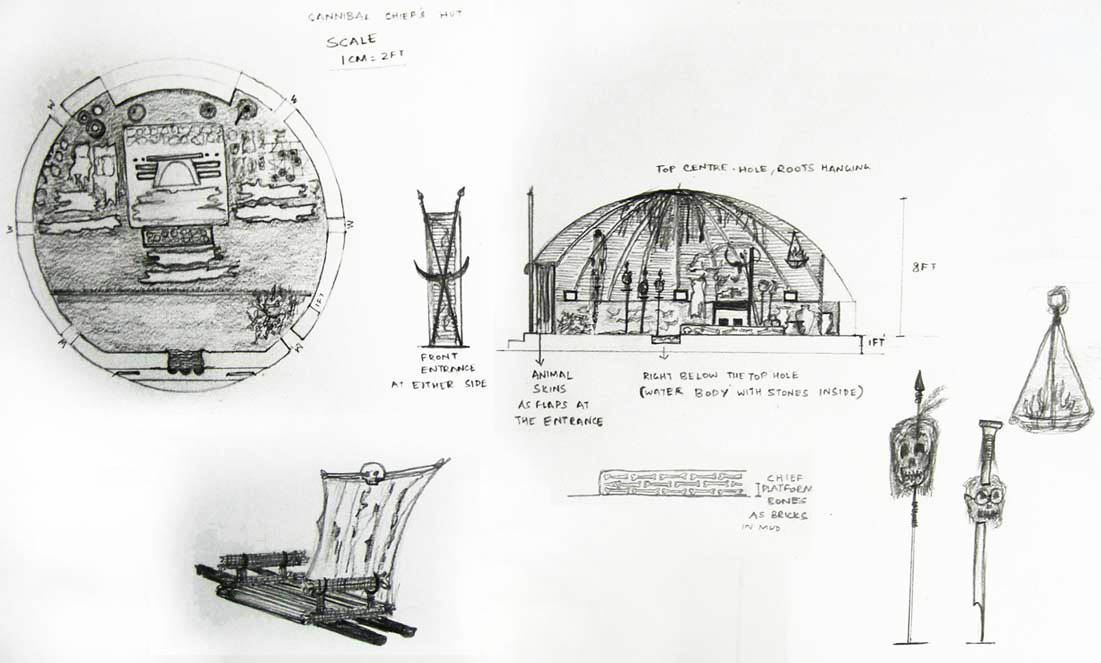 CANNIBAL CHIEF'S HUT
SCALE
1CM = 2FT
W
W
W
W
W
W
1FT
FRONT
ENTRANCE
AT EITHER SIDE
TOP CENTRE - HOLE, ROOTS HANGING
8FT
1FT
ANIMAL
SKINS
AS FLAPS AT
THE ENTRANCE
RIGHT BELOW THE TOP HOLE
(WATER BODY WITH STONES INSIDE)
CHIEF
PLATFORM
BONES
AS BRICKS
IN MUD